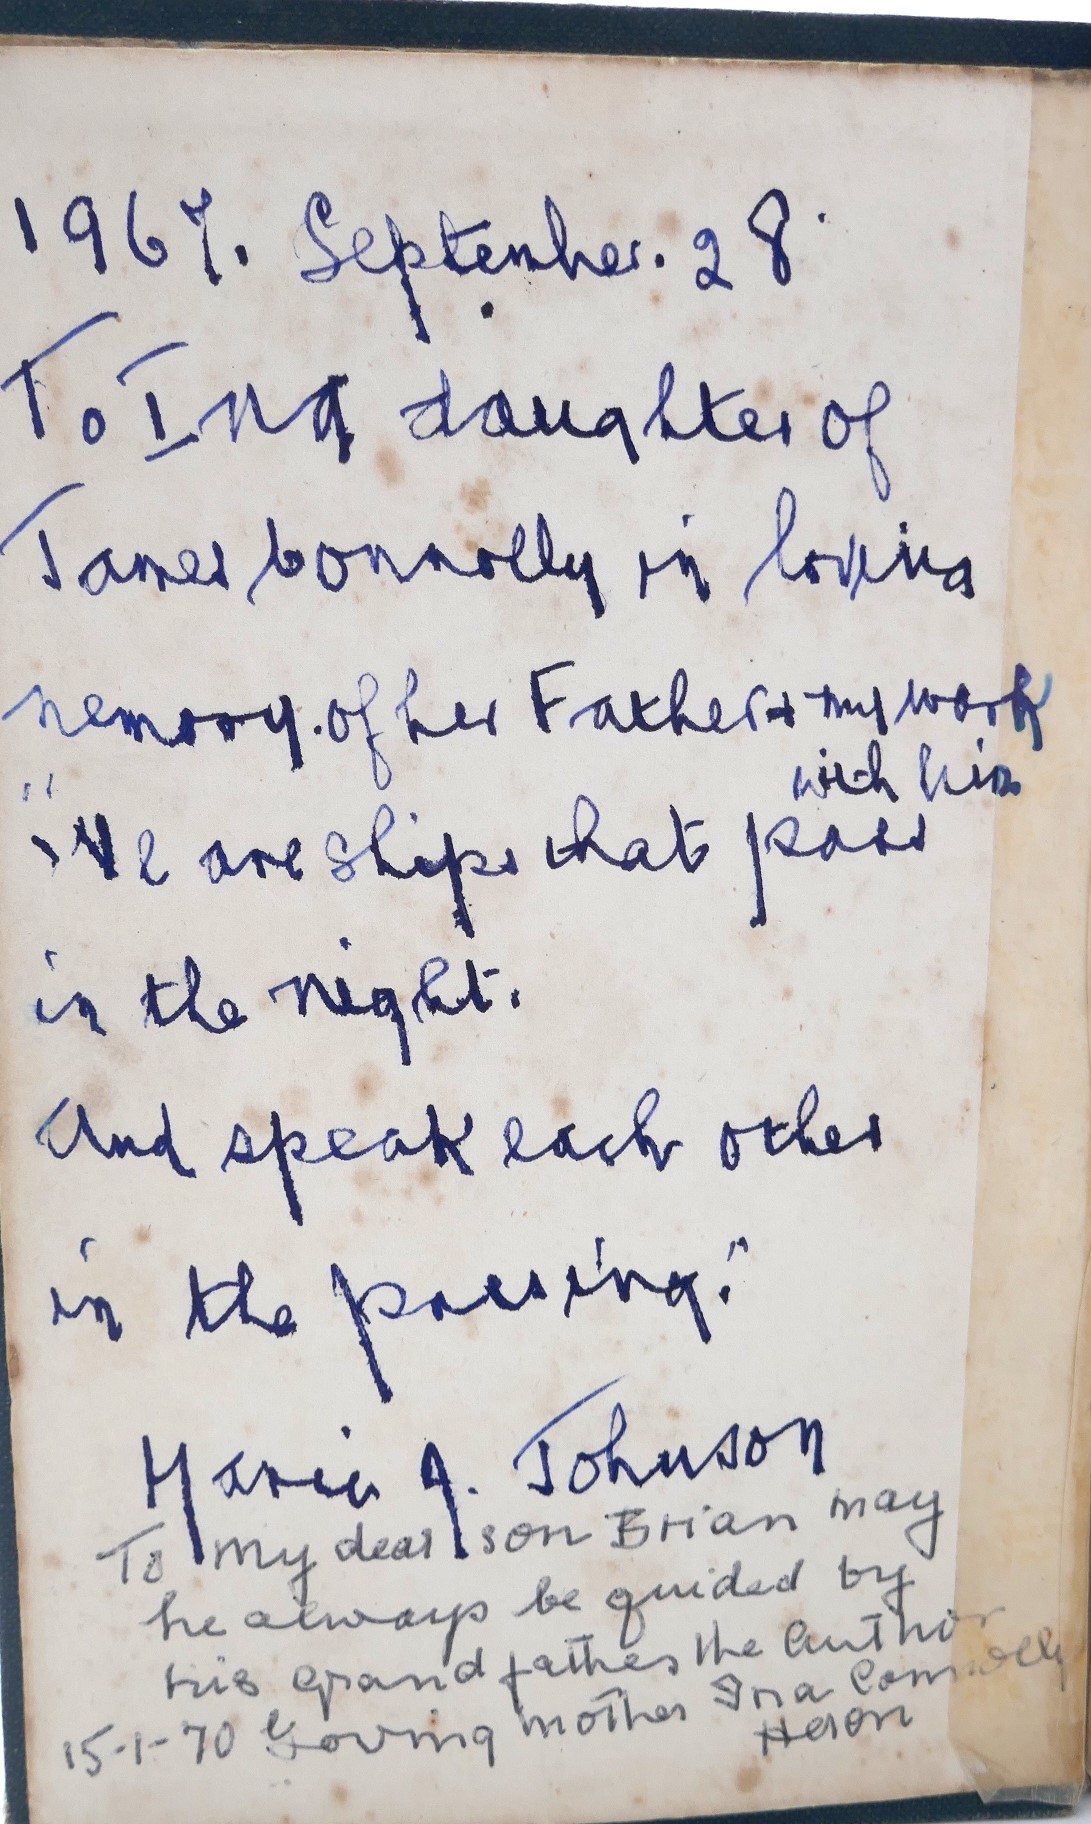 1967. September. 28.
To Ina daughter of
James Connolly in loving
memory. of her Father & my work
with him
"We are ships that pass
in the night.
And speak each other
in the passing."
Marie A. Johnson
To my dear son Brian may
he always be guided by
his grand father the Author
15-1-70 Loving mother Ina Connolly
Heron